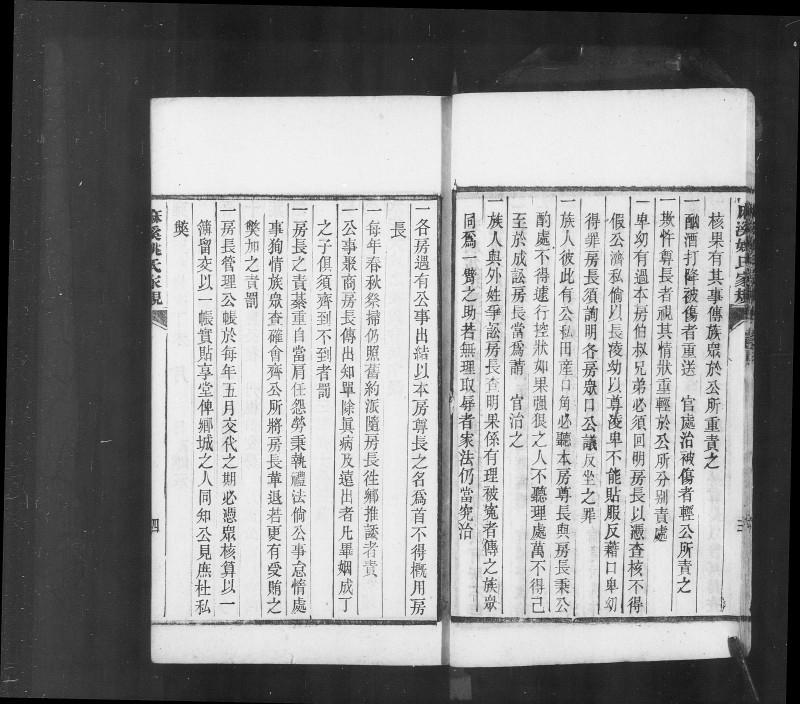 核果有其事傳族眾於公所重責之
一酗酒打降被傷者重送　官處治被傷者輕公所責之
一欺忤尊長者視其情狀重輕於公所分別責處
一卑幼有過本房伯叔兄弟必須回明房長以憑查核不得
假公濟私倘以長凌幼以尊凌卑不能貼服反藉口卑幼
得罪房長須詢明各房眾口公議反坐之罪
一族人彼此有公私田產口角必聽本房尊長與房長秉公
酌處不得遽行控狀如果強狠之人不聽理處萬不得已
至於成訟房長當爲請　官治之
一族人與外姓爭訟房長查明果係有理被冤者傳之族眾
同爲一臂之助若無理取辱者家法仍當究治
一各房遇有公事出結以本房尊長之名爲首不得概用房
長
一每年春秋祭掃仍照舊約派隨房長徃鄉推諉者責
一公事聚商房長傳出知單除眞病及遠出者凡畢姻成丁
之子俱須齊到不到者罰
一房長之責綦重自當肩任怨勞秉執禮法倘公事怠惰處
事狥情族眾查確會齊公所將房長革退若更有受賄之
獘加之責罰
一房長管理公帳於每年五月交代之期必憑眾核算以一
簿留交以一帳實貼享堂俾鄉城之人同知公見庶杜私
獘
麻溪姚氏家規
四